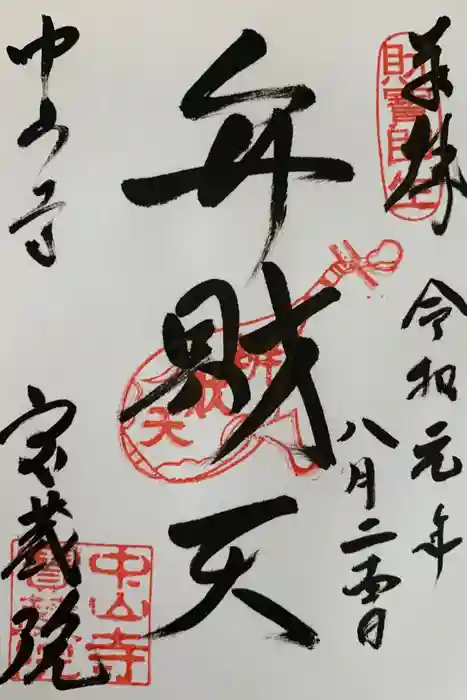 奉拝
財寶即生
令和元年
八月二十四日
弁財天
辨財天
中山寺
宝蔵院
中山寺
寶蔵院